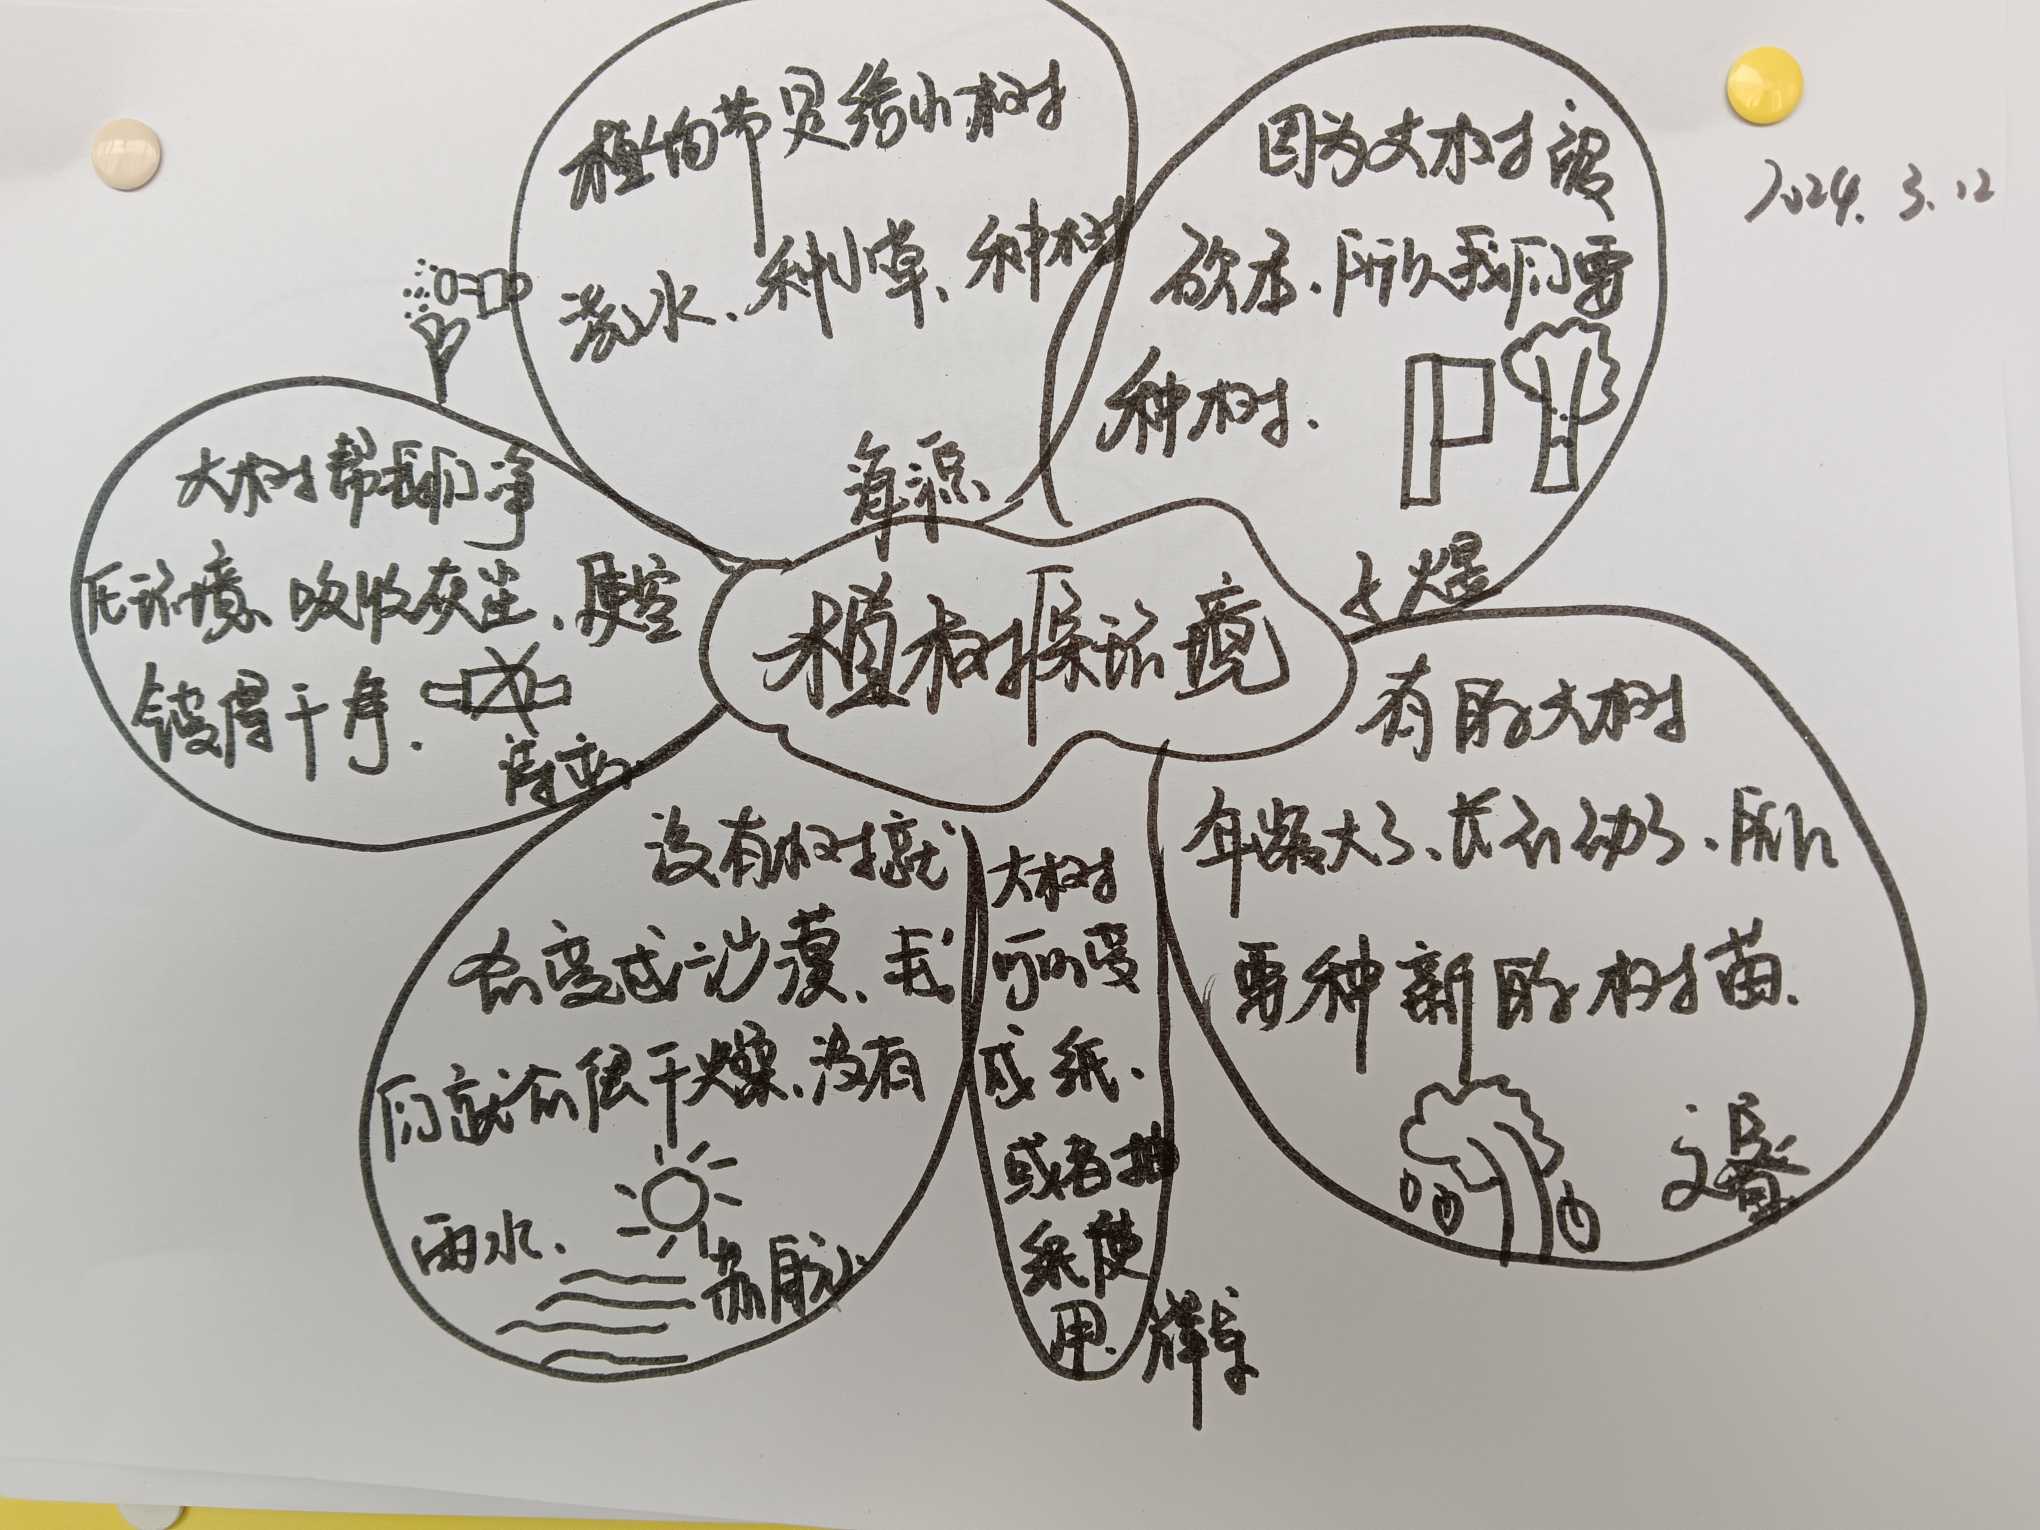 2024.3.12
植树节是给小树
浇水、种小草、种树
因为大树被
砍走、所以我们要
种树.
大树帮我们净
化环境、吸收灰尘、是空
气变得干净.
植树保环境
有的大树
年龄大了、长不动了、所以
要种新的树苗.
没有树就
会变成沙漠、我
们就会很干燥、没有
雨水、
大树
可以变
成纸、
或者抽
纸使
用.